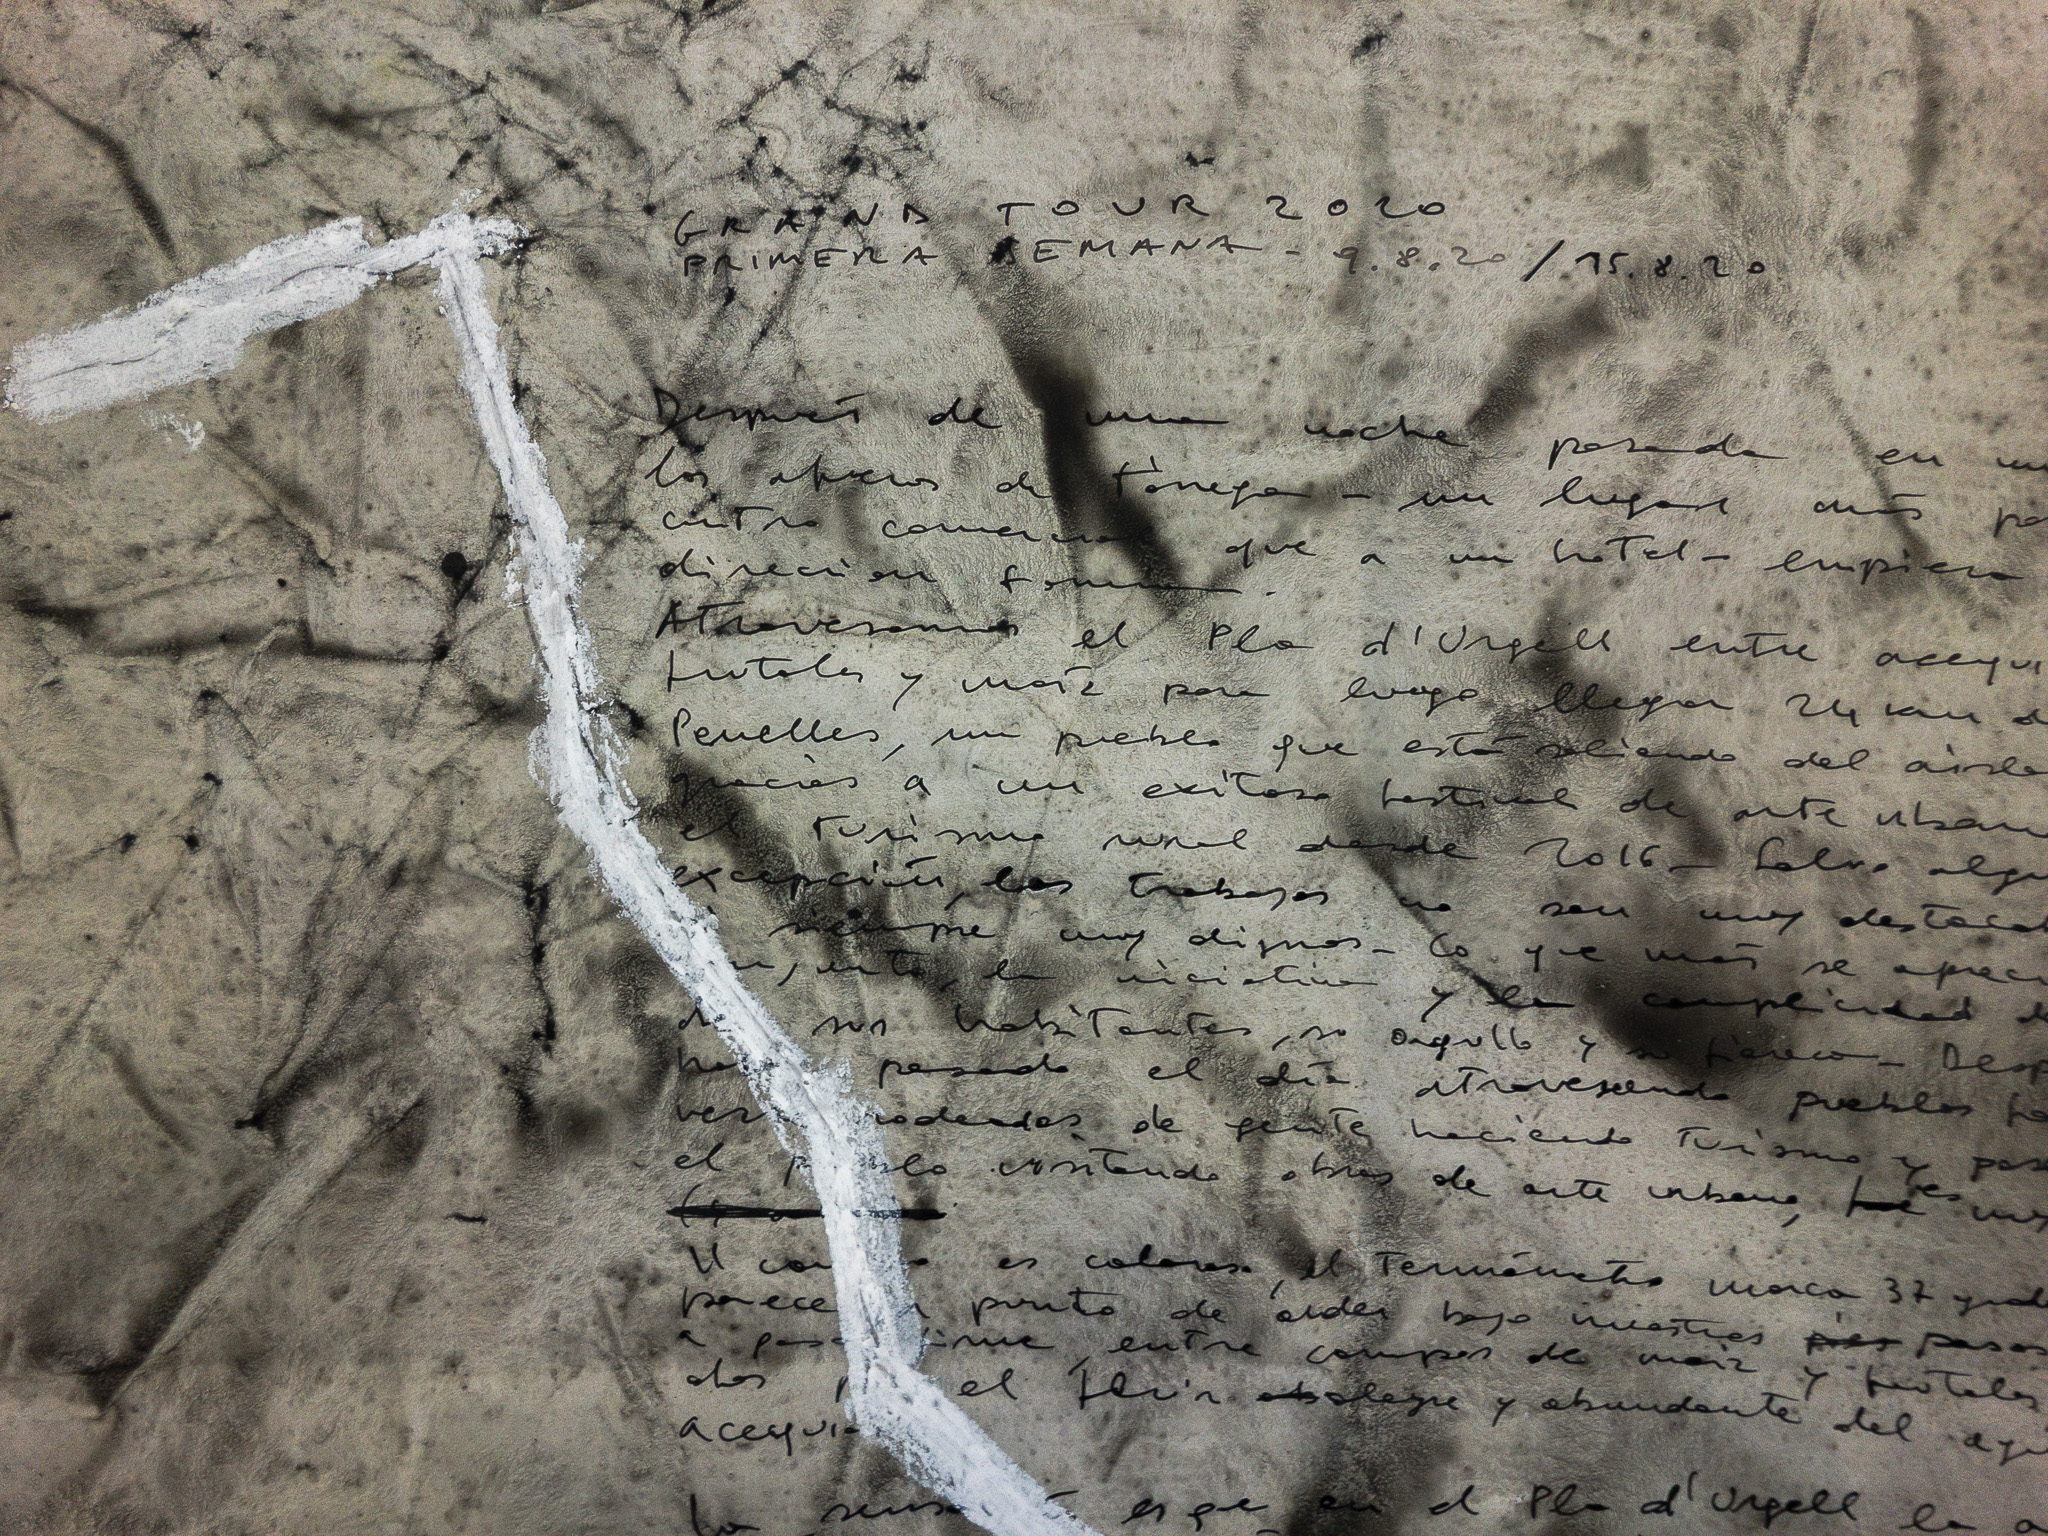 GRAND TOUR 2020
PRIMERA SEMANA - 9.8.20 / 15.8.20
Después de una noche pasada en
los afueras de Tàrrega - un lugar más
centro comercial que a un hotel - empieza
direcion
Atravesamos el Pla d'Urgell entre acequi
frutales y maíz para luego llegar 24 km
Penelles, un pueblo que está saliendo del aisla
gracias a un exitoso festival de arte urbano
el turismo rural desde 2016 - Salvo algu
excepción, los trabajos no son muy destacab
siempre muy dignos - Lo que más se apreci
la iniciativa y la complicidad
de sus habitantes, su orgullo y su - Desp
pasado el día atravesando pueblos
rodeados de gente haciendo turismo y pas
el visitando obras de arte urbano, es
El es caloroso, el termómetro marca 37 grad
parece punto de arder bajo nuestros pasos
a entre campos de maíz y frutales
el fluir alegre y abundante del agu
acequia
La es que en el Pla d'Urgell la